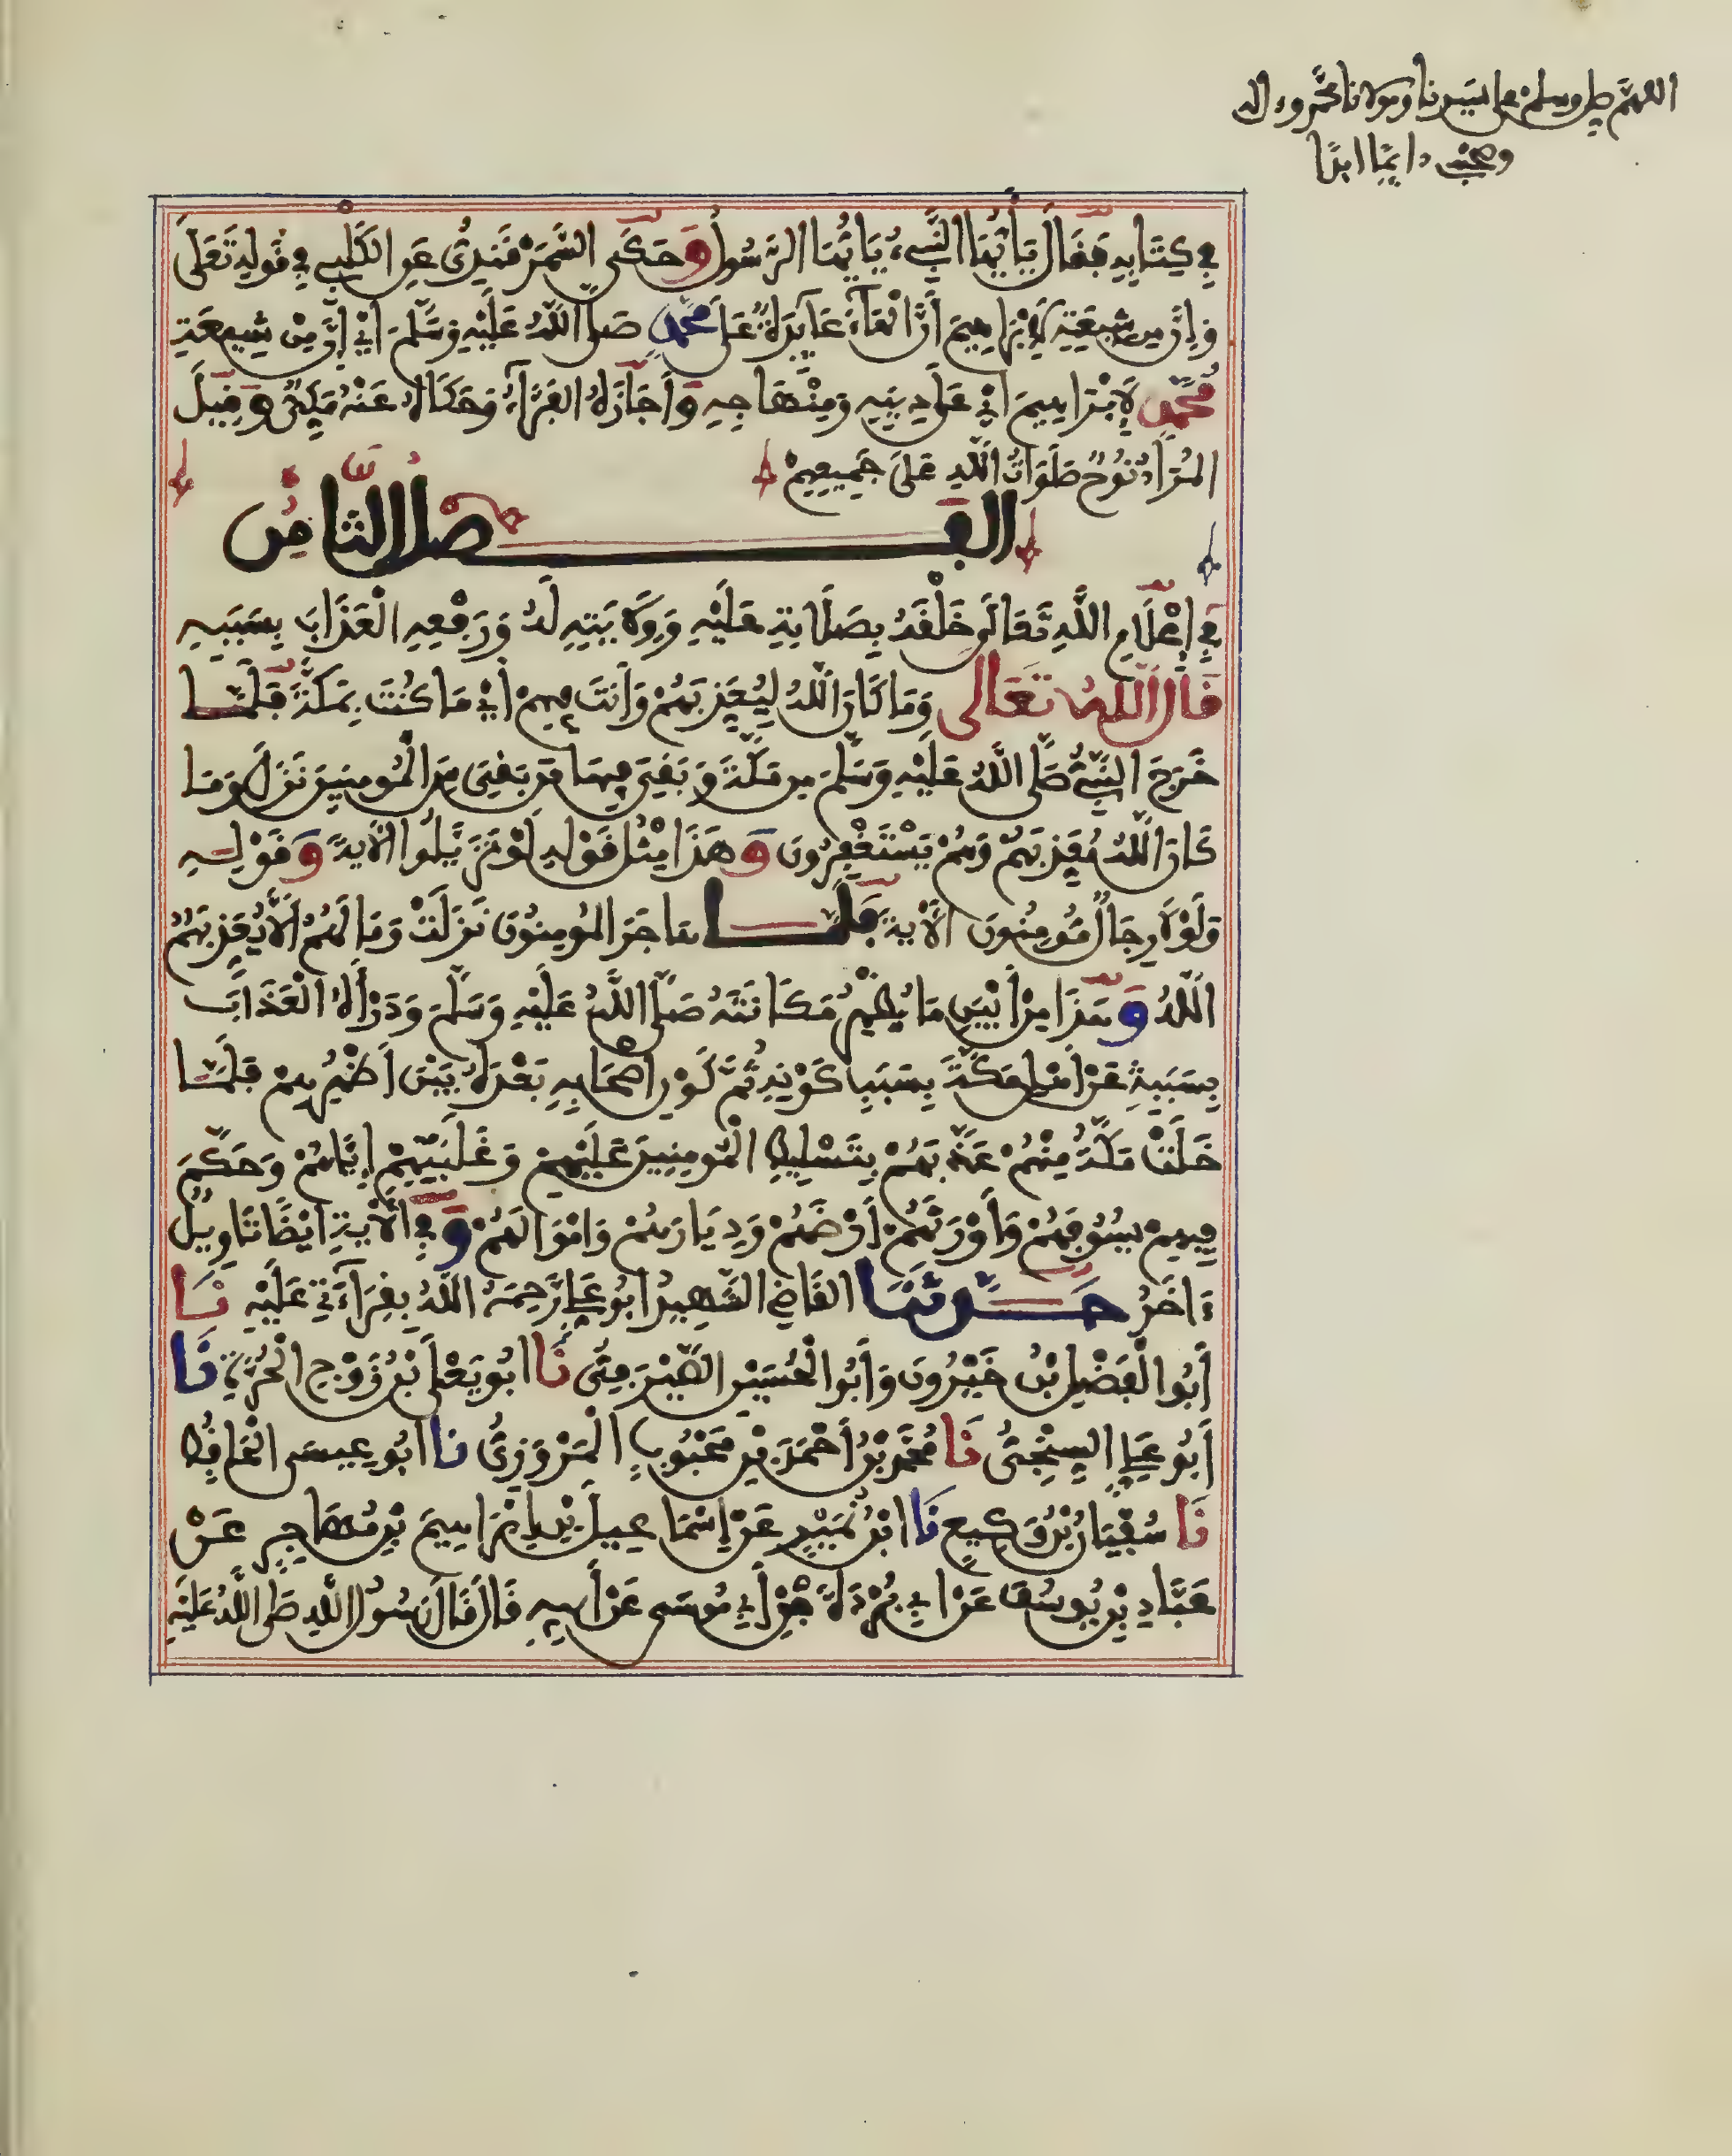 اللهم صل وسلم على سيدنا ومولانا محمد وءاله
وصحبه دايما ابدا
في كِتَابِهِ فَقَالَ يَأَيُّهَا النَّبِيءُ يَا يُّهَا الرَّسُولُ وَحَكَى السَّمَرْقَنْدِيُّ عَنِ الكَلْبِي فِي قَوْلِهِ تَعَلَى
وَإِنَّ مِن شِيعَتِهِ لَإِبْرَاهِيمَ أَنَّ الْهَاءَ عَايِدَةٌ عَلَى مُحَمَّدٍ صَلَّى اللَّهُ عَلَيْهِ وَسَلَّمَ أَيْ إِنَّ مِنْ شِيعَةِ
مُحَمَّدٍ لَإِبْرَاهِيمَ أَيْ عَلَى دِينِهِ وَمِنْهَاجِهِ وَأَجَازَهُ الفَرَّاءُ وَحَكَاهُ عَنْهُ مَكِّيٌّ وَقِيلَ
المُرَادُ نُوحٌ صَلَوَاتُ اللَّهِ عَلَى جَمِيعِهِمْ
الفَصْلُ الثَّامِنُ
فِي إِعْلَامِ اللَّهِ تَعَالَى خَلْقَهُ بِصَلَاتِهِ عَلَيْهِ وَوِلَايَتِهِ لَهُ وَرَفْعِهِ الْعَذَابَ بِسَبَبِهِ
قَالَ اللَّهُ تَعَالَى وَمَا كَانَ اللَّهُ لِيُعَذِّبَهُمْ وَأَنتَ فِيهِمْ أَيْ مَا كُنتَ بِمَكَّةَ فَلَمَّا
خَرَجَ النَّبِيُّ صَلَّى اللَّهُ عَلَيْهِ وَسَلَّمَ مِن مَكَّةَ وَبَقِيَ فِيهَا مَن بَقِيَ مِنَ الْمُومِنِينَ نَزَلَ وَمَا
كَانَ اللَّهُ مُعَذِّبَهُمْ وَهُمْ يَسْتَغْفِرُونَ وَهَذَا مِثْلُ قَوْلِهِ لَوْ تَزَيَّلُوا الْآيَةَ وَقَوْلِهِ
وَلَوْلَا رِجَالٌ مُّومِنُونَ الْآيَةَ فَلَمَّا هَاجَرَ المُومِنُونَ نَزَلَتْ وَمَا لَهُمُ أَلَّا يُعَذِّبَهُمُ
اللَّهُ وَهَذَا مِنْ أَبْيَنِ مَا يُظْهِرُ مَكَانَتَهُ صَلَّى اللَّهُ عَلَيْهِ وَسَلَّمَ وَدَرْأَهُ الْعَذَابَ
بِسَبَبِهِ عَنْ أَهْلِ مَكَّةَ بِسَبَبِ كَوْنِهِ ثُمَّ كَوْنِ أَصْحَابِهِ بَعْدَهُ بَيْنَ أَظْهُرِهِمْ فَلَمَّا
خَلَتْ مَكَّةُ مِنْهُمْ عَذَّبَهُمْ بِتَسْلِيطِ الْمُومِنِينَ عَلَيْهِمْ وَغَلَبَتِهِمْ إِيَّاهُمْ وَحَكَّمَ
فِيهِمْ سُيُوفَهُمْ وَأَوْرَثَهُمْ أَرْضَهُمْ وَدِيَارَهُمْ وَامْوَالَهُمْ وَفِي الْآيَةِ أَيْضًا تَاوِيلٌ
ءَاخَرُ حَدَّثَنَا القَاضِي الشَّهِيدُ أَبُو عَلِيٍّ رَحِمَهُ اللَّهُ بِقِرَاءَتِي عَلَيْهِ نَا
أَبُو الْفَضْلِ بْنُ خَيْرُونَ وَأَبُو الْحُسَيْنِ الصَّيْرَفِيُّ نَا ابُو يَعْلَى بْنُ زَوْجِ الْحُرَّةِ نَا
أَبُو عَلِيٍّ السِّنْجِيُّ نَا مُحَمَّدُ بْنُ أَحْمَدَ بْنِ مَحْبُوبٍ الْمَرْوَزِيُّ نَا ابُو عِيسَى الْحَافِظُ
نَا سُفْيَانُ بْنُ وَكِيعٍ نَا ابْنُ نُمَيْرٍ عَنْ إِسْمَاعِيلَ بْنِ إِبْرَاهِيمَ بْنِ مُهَاجِرٍ عَنْ
عَبَّادِ بْنِ يُوسُفَ عَنْ أَبِي بُرْدَةَ بْنِ أَبِي مُوسَى عَنْ أَبِيهِ قَالَ قَالَ رَسُولُ اللَّهِ صَلَّى اللَّهُ عَلَيْهِ